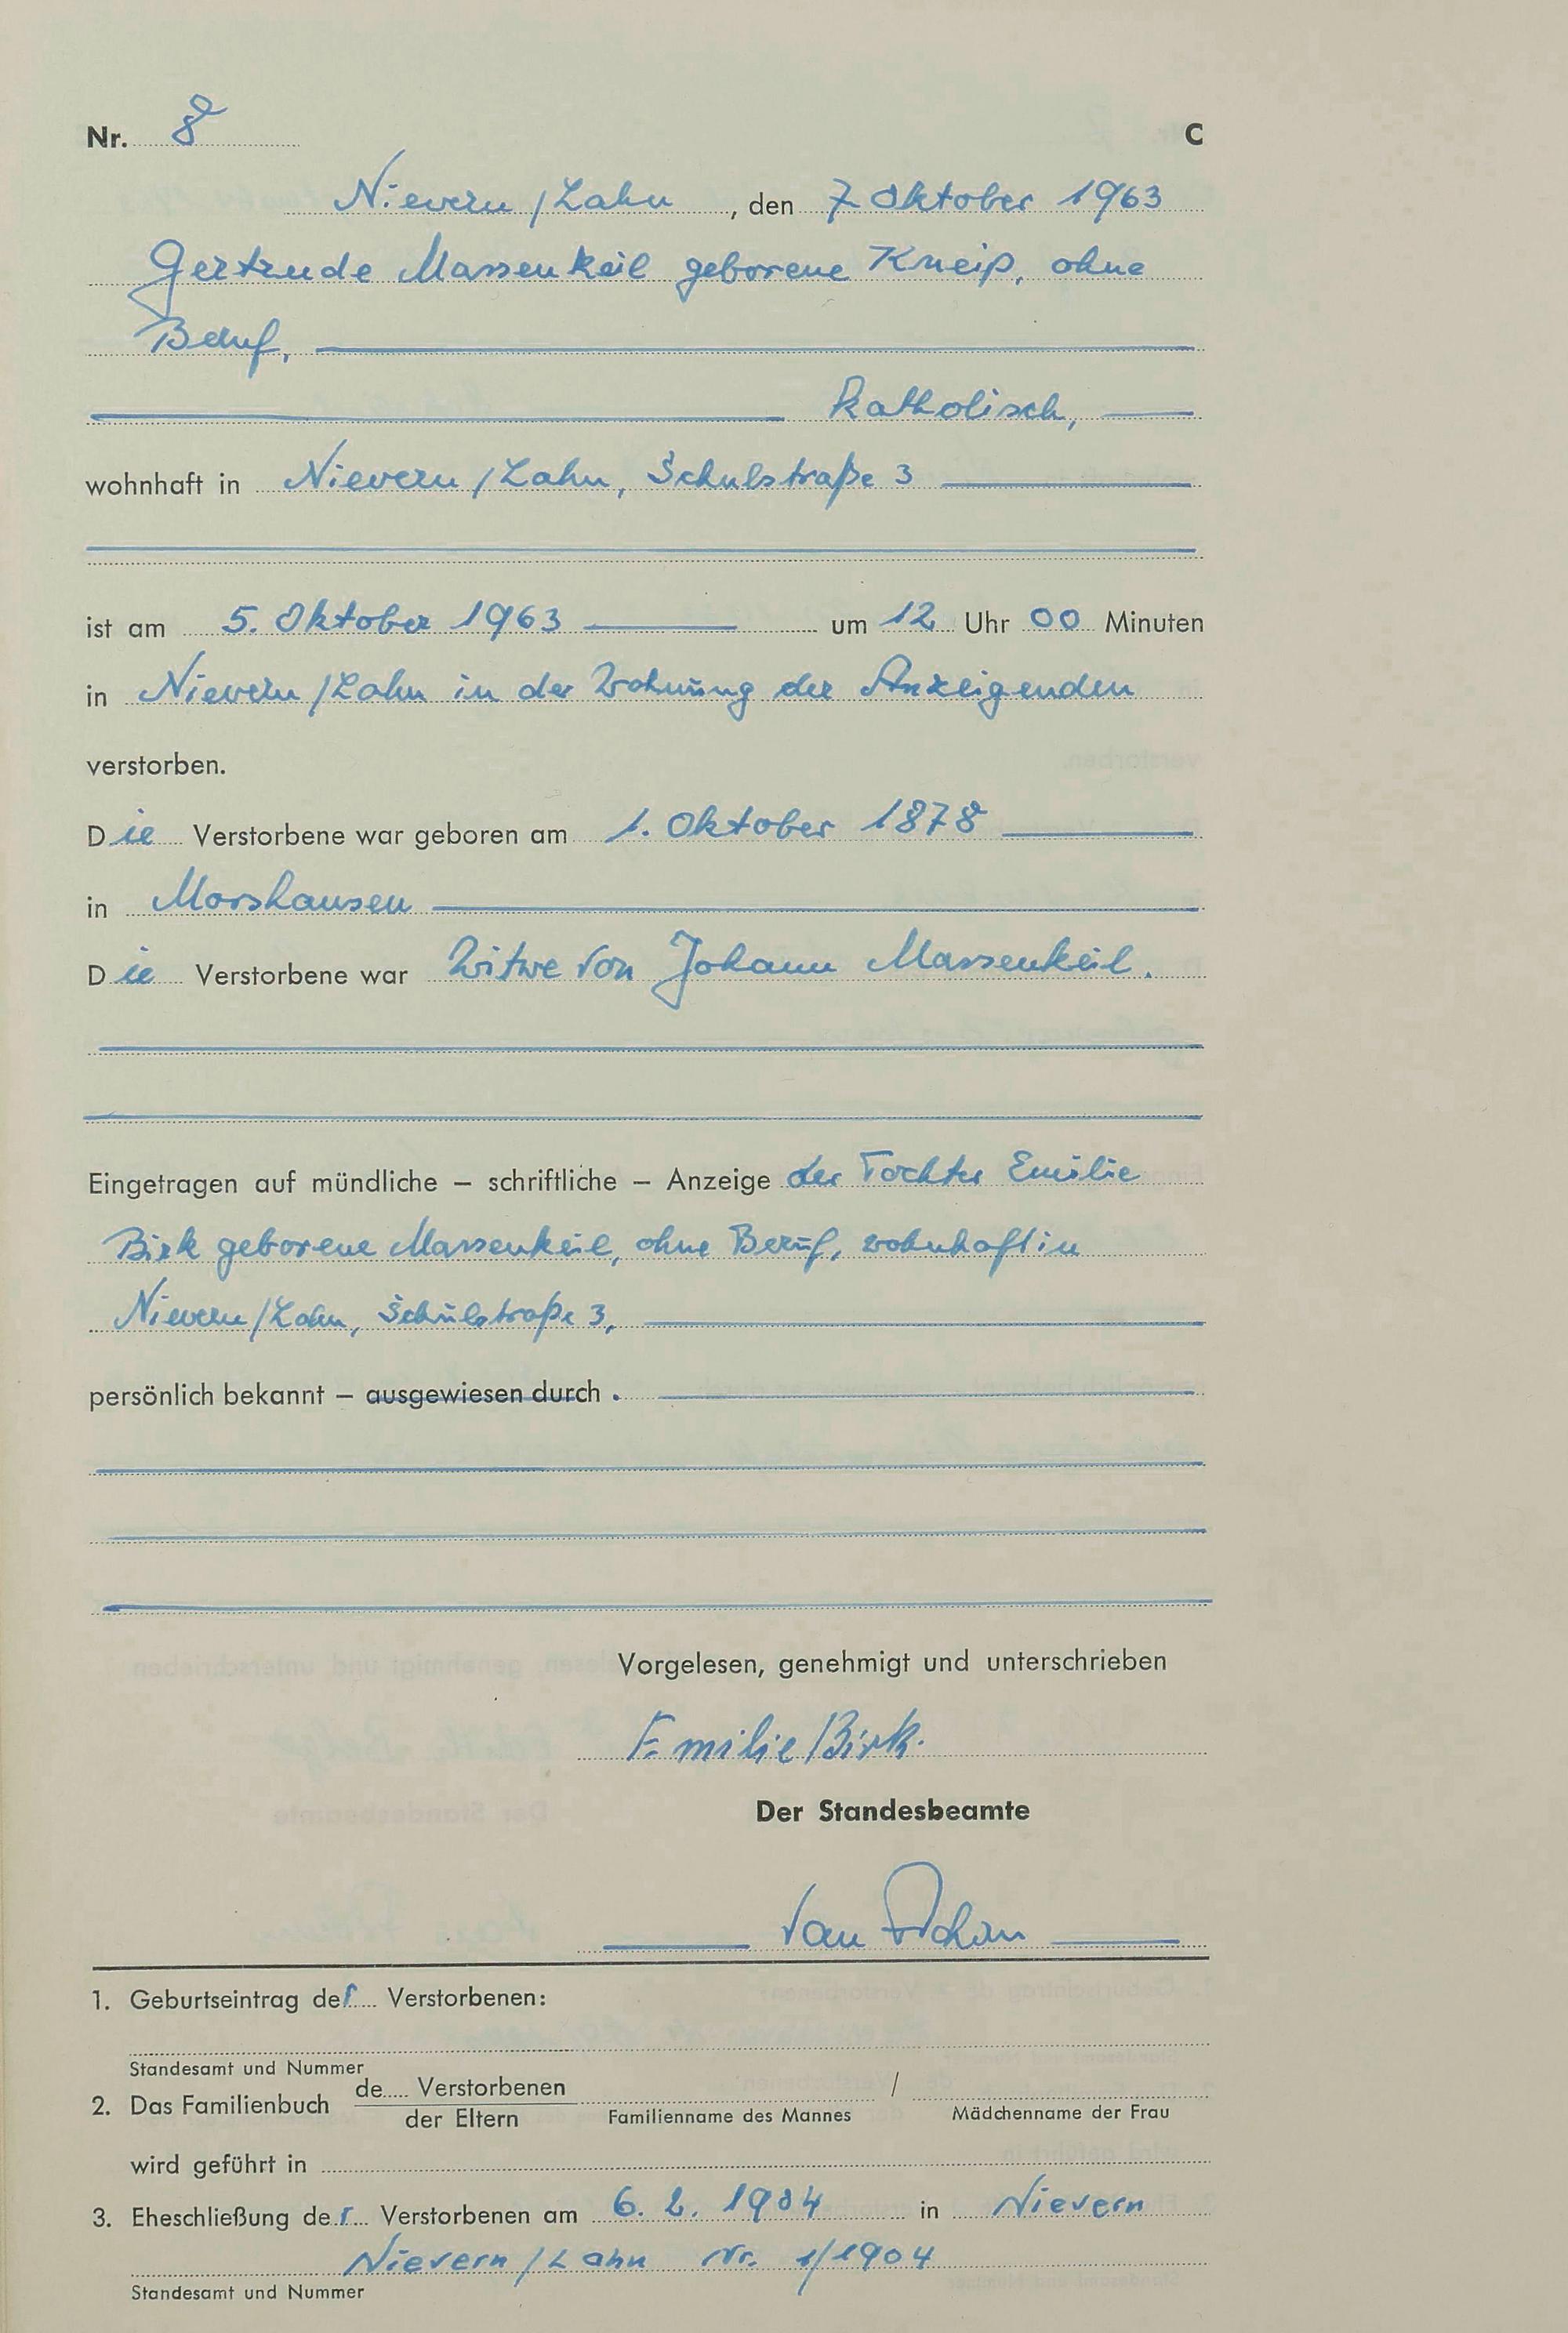 Nr. 8 C
Nievern/Lahn, den 7. Oktober 1963
Gertrude Massenkeil geborene Kneip, ohne
Beruf,
katholisch,
wohnhaft in Nievern/Lahn, Schulstraße 3
ist am 5. Oktober 1963 um 12 Uhr 00 Minuten
in Nievern/Lahn in der Wohnung der Anzeigenden
verstorben.
Die Verstorbene war geboren am 1. Oktober 1878
in Morshausen
Die Verstorbene war Witwe von Johann Massenkeil.
Eingetragen auf mündliche – schriftliche – Anzeige der Tochter Emilie
Birk geborene Massenkeil, ohne Beruf, wohnhaft in
Nievern/Lahn, Schulstraße 3,
persönlich bekannt – ausgewiesen durch .
Vorgelesen, genehmigt und unterschrieben
Emilie Birk.
Der Standesbeamte
1. Geburtseintrag der Verstorbenen:
Standesamt und Nummer
2. Das Familienbuch de Verstorbenen /
der Eltern Familienname des Mannes Mädchenname der Frau
wird geführt in
3. Eheschließung der Verstorbenen am 6. 2. 1904 in Nievern
Nievern/Lahn Nr. 1/1904
Standesamt und Nummer